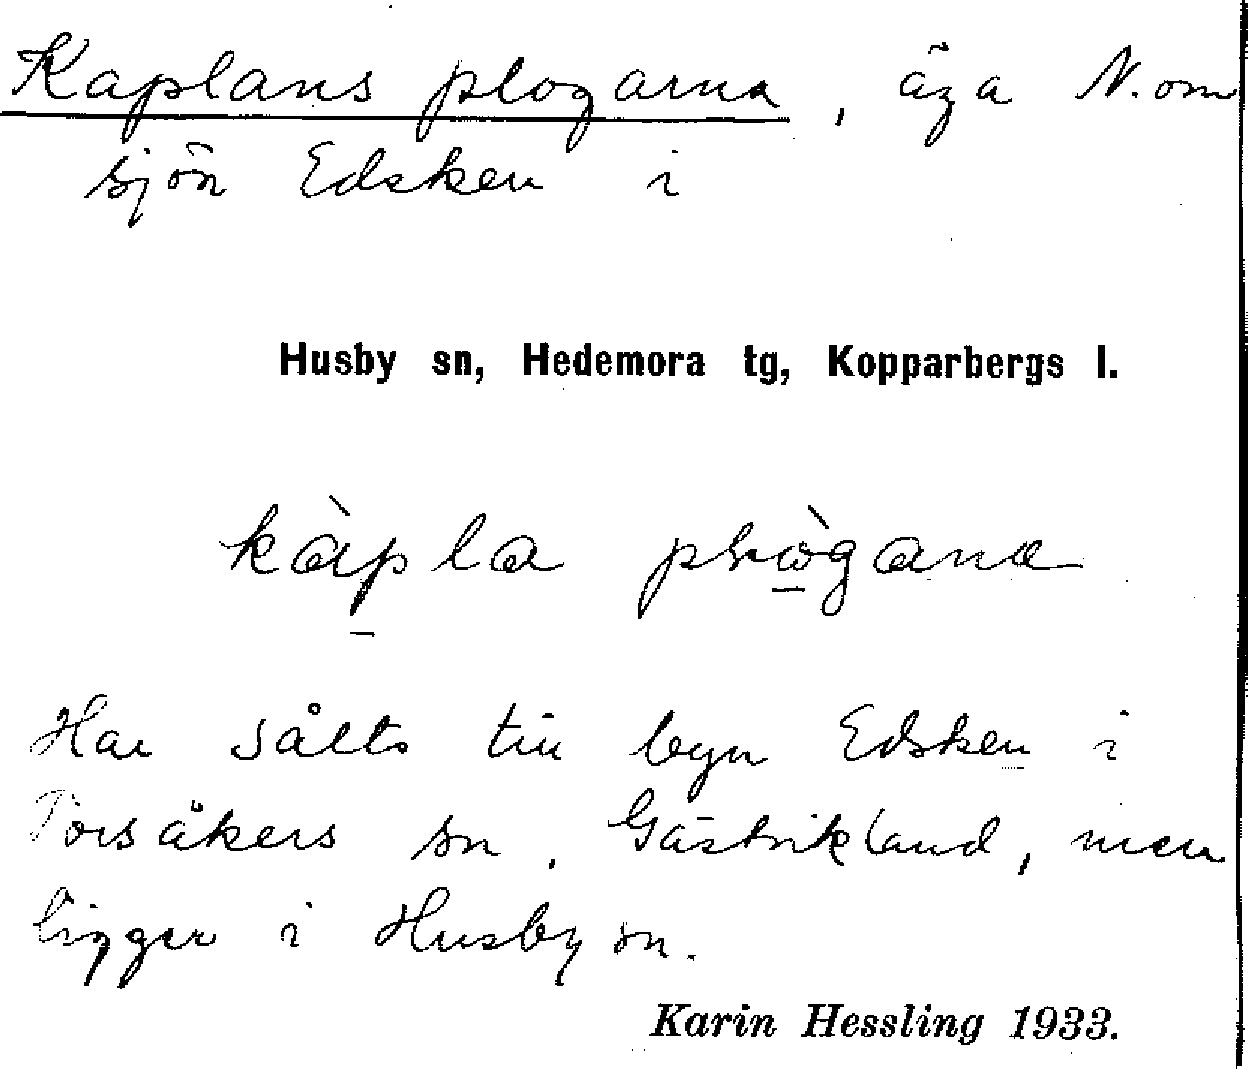 Kaplans plogarna, äga N. om
sjön Edsken i
Husby sn, Hedemora tg, Kopparbergs l.
kàpla
Har sålts till byn Edsken i
Torsåkers sn, Gästrikland, men
ligger i Husby sn.
Karin Hessling 1933.